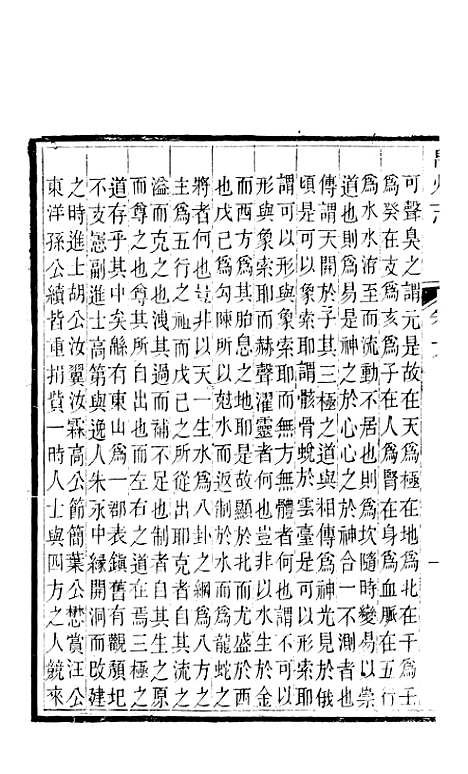 可聲臭之謂元是故在天爲極在地爲北在干爲壬
爲癸在支爲亥爲子在人爲腎在身爲血脈在五行
爲水水洊至而流動不居也則爲坎隨時變易以崇
道也則爲易是神之於心心之於神合一不測者也
傳謂天開於子其三極之道與相傳神光見於俄
頃是可以形索耶而謂骸骨蛻於雲臺是可以形索耶
謂可以形與象索耶而無方無體者何也謂不可以
形與象索耶而赫聲濯靈者何也豈非以水生於金
而西方爲其胎息之地耶是故顯於北而尤顯於西
也戊己爲勾陳所以尅水而返制於水而爲龍蛇之
將者何也豈非以天一生水爲八卦之綱爲八方之
主爲五行之祖而戊己之所從出耶克者自其流之
溢而克之也洩其過而補不足也制者自其支之原
而尊之也尊其所自出也而左右之道在焉三極之
道存乎其中矣緜有東山爲一郡表鎮舊有觀頹圯
不支憲副進士高第與逸人朱永中緣開洞而改建
之時進上胡公汝翼汝霖高公簡簡葉公懋賞汪公
東洋孫公續皆重捐貲一時人士與四方之人競來